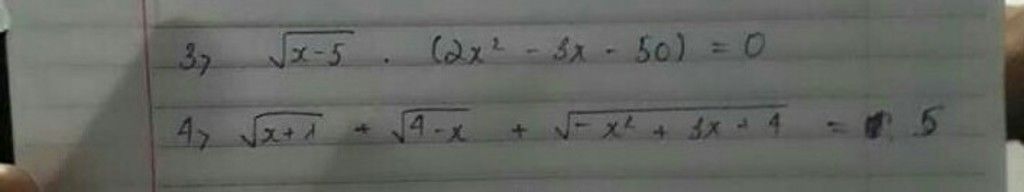 3) √(x-5) . (2x² - 3x - 50) = 0
4) √(x+1) + √(4-x) + √(-x² + 3x + 4) = 5